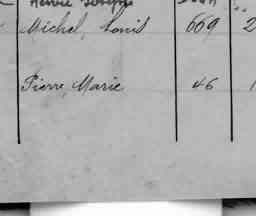 Michel, Louis 669 2
Pierre, Marie 46 1